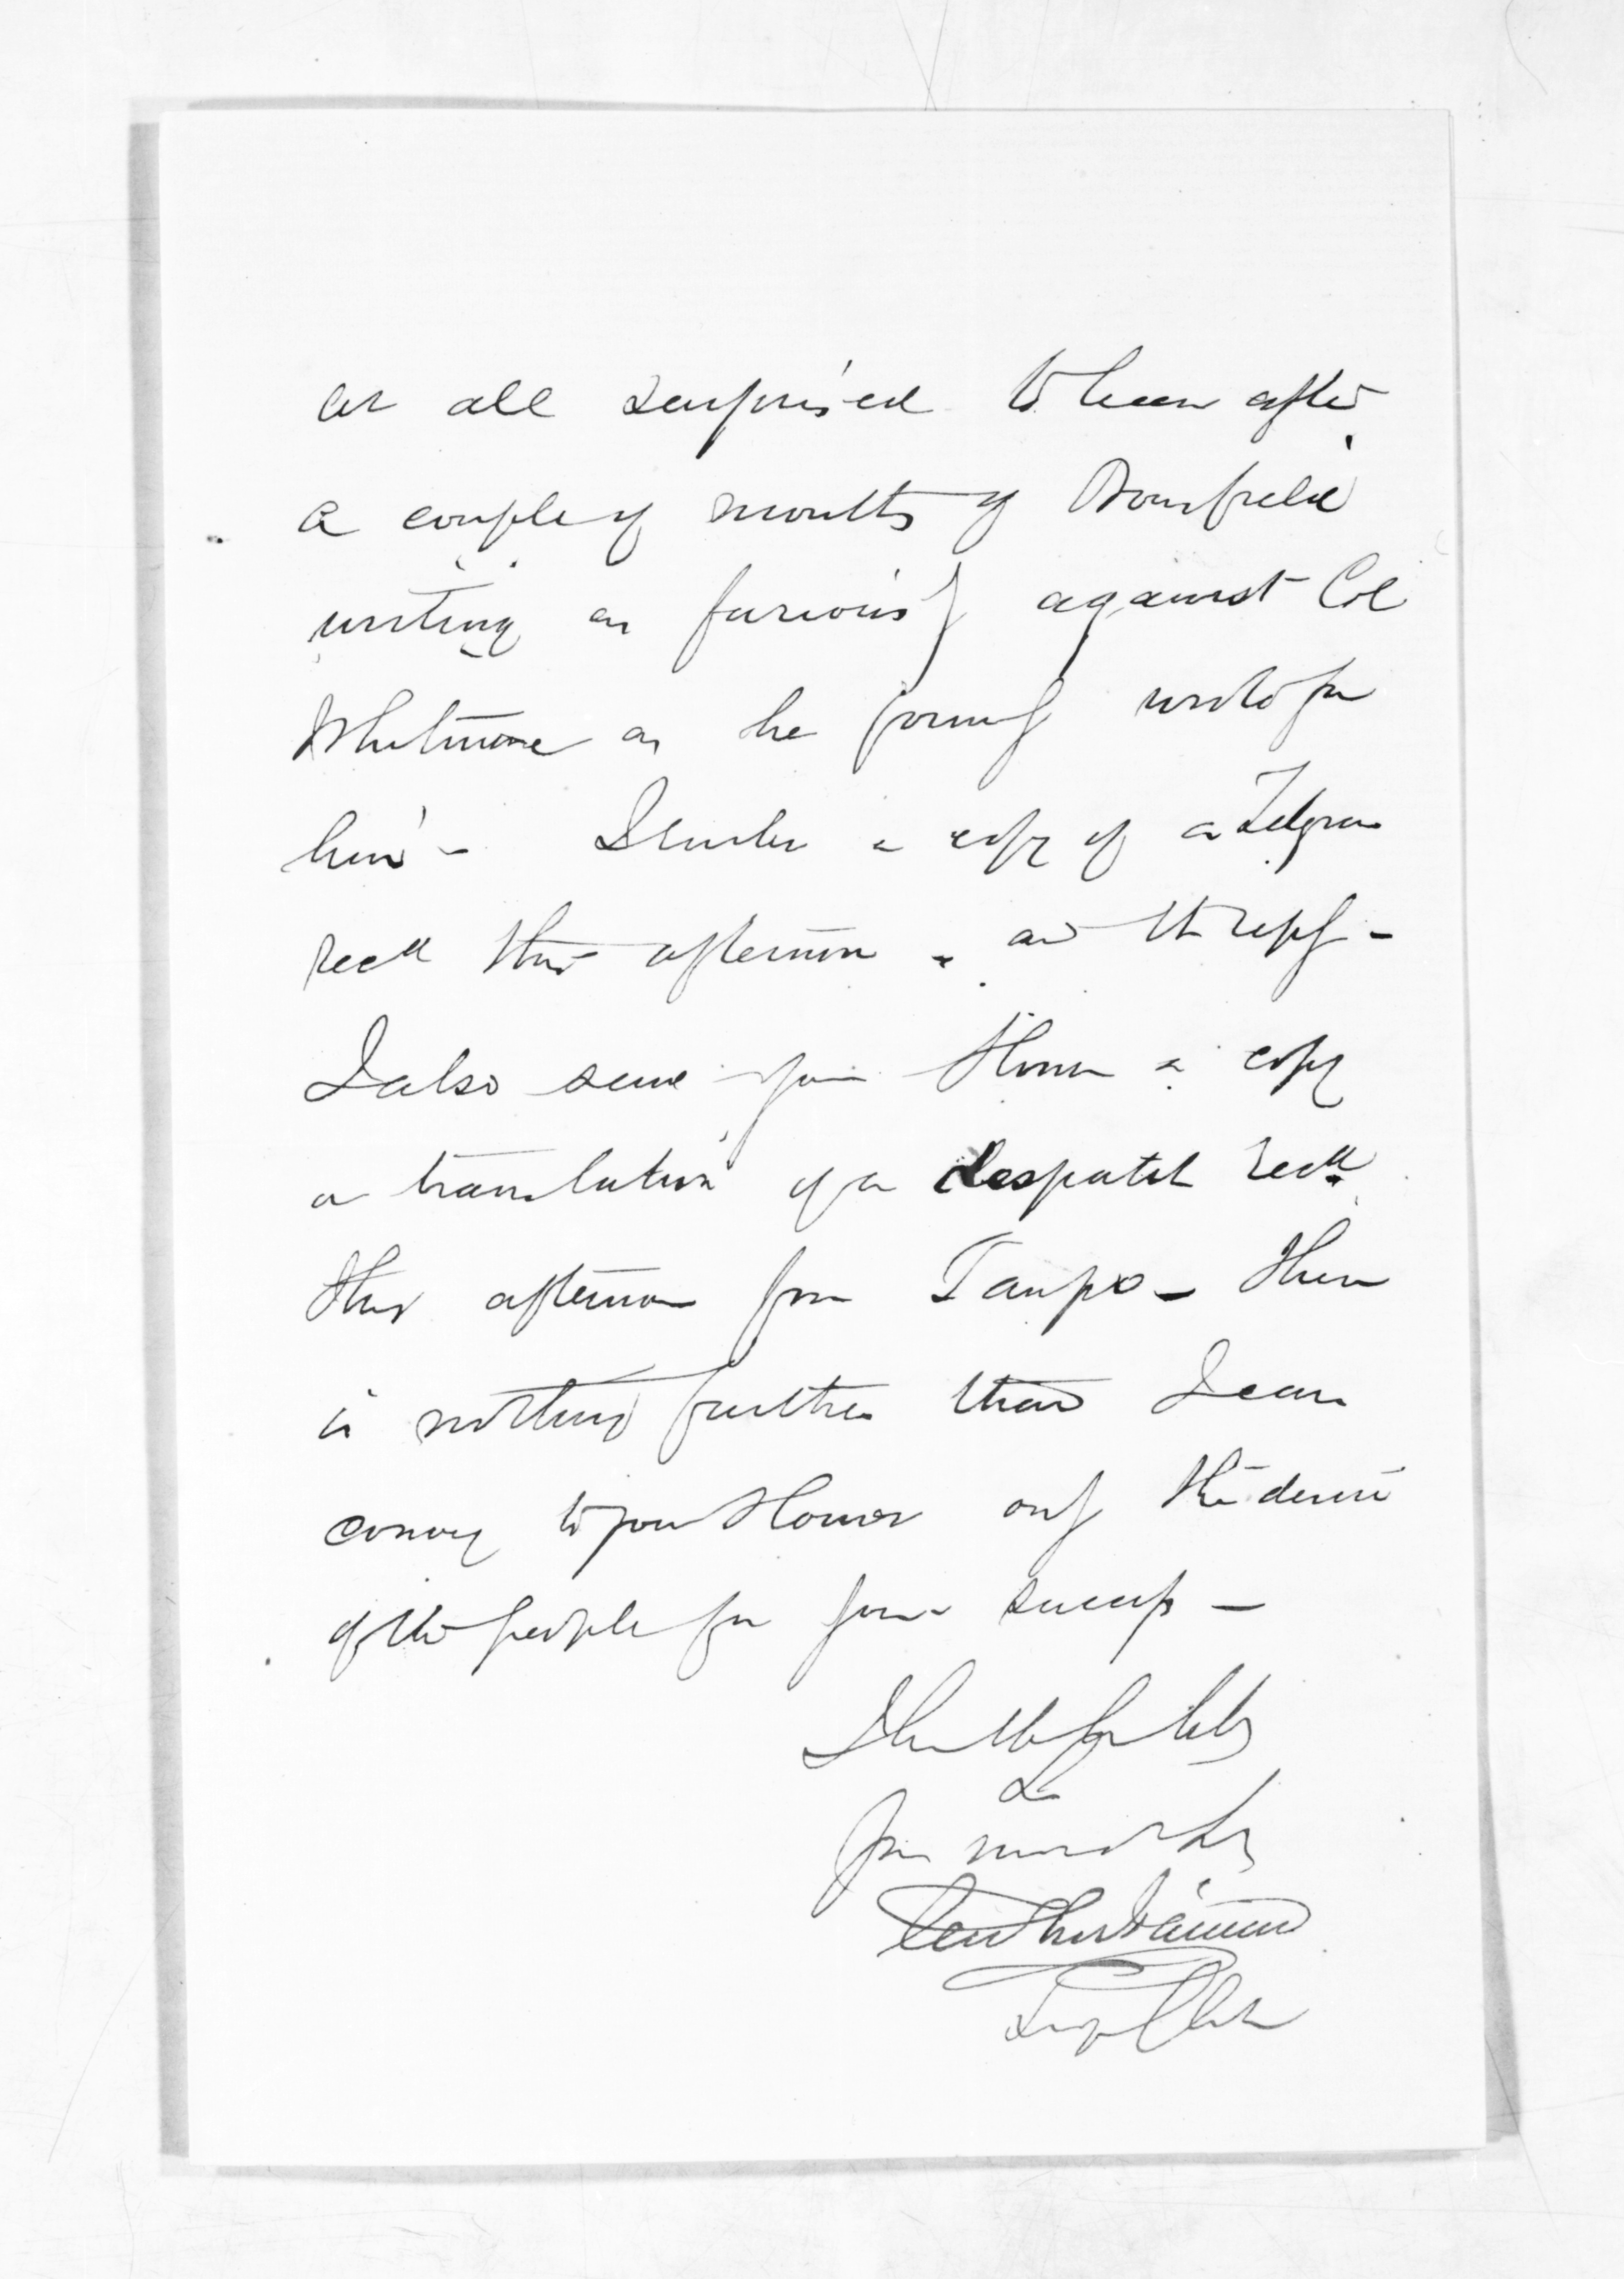 at all surprised to hear after
a couple of months of Bousfield
writing as furiously against Col
Whitmore as he formerly wrote for
him - I enclose a copy of a Telegram
recd this afternoon - and the reply -
I also send your Honor a copy
a translation of a despatch recd
this afternoon from Taupo - There
is nothing further that I can
convey to your Honor only the desire
of the people for your success -
I have the honor to be
Sir
Your most obt